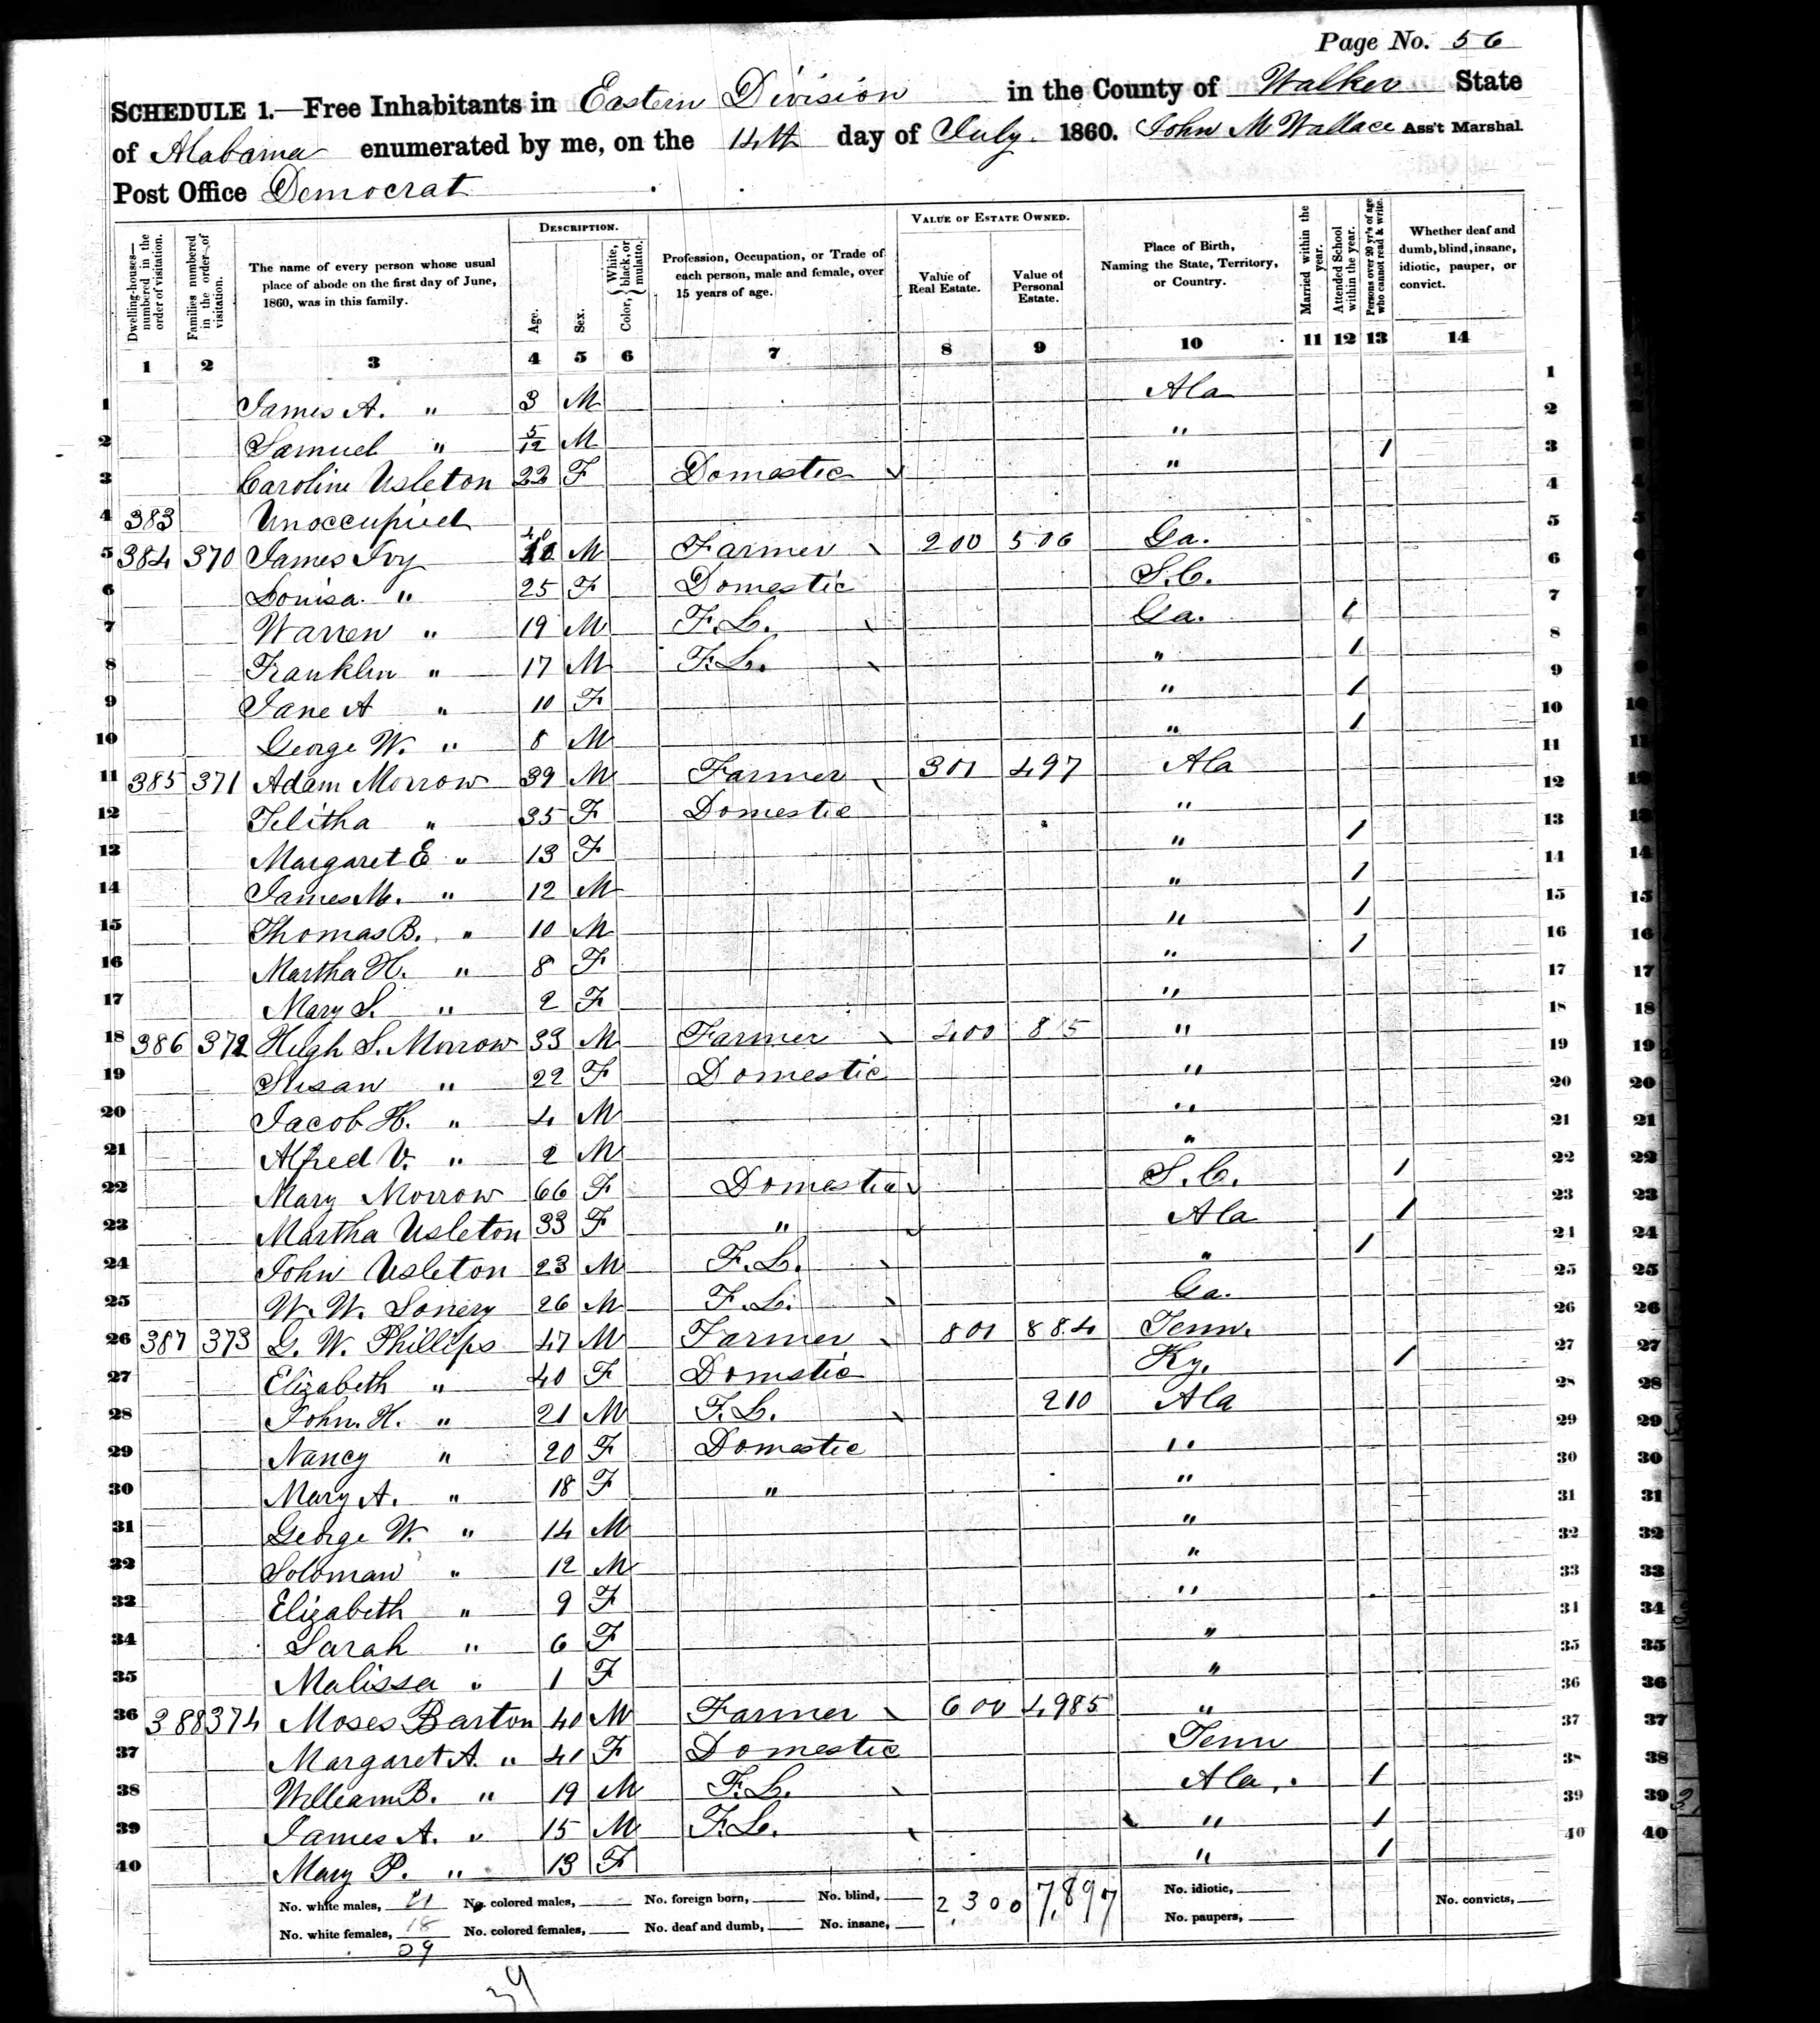 Page No. 56
SCHEDULE 1.—Free Inhabitants in Eastern Division in the County of Walker State
of Alabama enumerated by me, on the 14th day of July 1860. John M Wallace Ass't Marshal
Post Office Democrat
Dwelling-houses—numbered in the order of visitation. Families numbered in the order of visitation. The name of every person whose usual place of abode on the first day of June, 1860, was in this family. DESCRIPTION. Age. Sex. Color, { White, black, or mulatto. Profession, Occupation, or Trade of each person, male and female, over 15 years of age. VALUE OF ESTATE OWNED. Value of Real Estate. Value of Personal Estate. Place of Birth, Naming the State, Territory, or Country. Married within the year. Attended School within the year. Persons over 20 y'rs of age who cannot read & write. Whether deaf and dumb, blind, insane, idiotic, pauper, or convict.
1 2 3 4 5 6 7 8 9 10 11 12 13 14
1 James A. " 3 M Ala 1
2 Samuel " 5/12 M " 2
3 Caroline Usleton 22 F Domestic " / 3
4 383 Unoccupied 4
5 384 370 James Ivy 40 M Farmer 200 506 Ga. 5
6 Louisa " 25 F Domestic S.C. 6
7 Warren " 19 M F.L. Ga. / 7
8 Franklin " 17 M F.L. " / 8
9 Jane A " 10 F " / 9
10 George W. " 8 M " / 10
11 385 371 Adam Morrow 39 M Farmer 301 497 Ala 11
12 Telitha " 35 F Domestic " 12
13 Margaret E " 13 F " / 13
14 James M. " 12 M " / 14
15 Thomas B. " 10 M " / 15
16 Martha H. " 8 F " / 16
17 Mary S. " 2 F " 17
18 386 372 Hugh S. Morrow 33 M Farmer 400 815 " 18
19 Susan " 22 F Domestic " 19
20 Jacob H. " 4 M " 20
21 Alfred V. " 2 M " 21
22 Mary Morrow 66 F Domestic S.C. / 22
23 Martha Usleton 33 F " Ala / 23
24 John Usleton 23 M F.L. " / 24
25 W. W. 26 M F.L. Ga. 25
26 387 373 G. W. Phillips 47 M Farmer 801 884 Tenn. 26
27 Elizabeth " 40 F Domstic Ky. / 27
28 John. H. " 21 M F.L. 210 Ala 28
29 Nancy " 20 F Domestic " 29
30 Mary A. " 18 F " " 30
31 George W. " 14 M " 31
32 Soloman " 12 M " 32
33 Elizabeth " 9 F " 33
34 Sarah " 6 F " 34
35 Malissa " 1 F " 35
36 388 374 Moses Barton 40 M Farmer 600 4985 " 36
37 Margaret A. " 41 F Domestic Tenn 37
38 William B. " 19 M F.L. Ala. / 38
39 James A. " 15 M F.L. " / 39
40 Mary P. " 13 F " / 40
No. white males, 21 No. colored males, No. foreign born, No. blind, 2,300 7,897 No. idiotic, No. convicts,
No. white females, 18 No. colored females, No. deaf and dumb, No. insane, No. paupers,
39
39